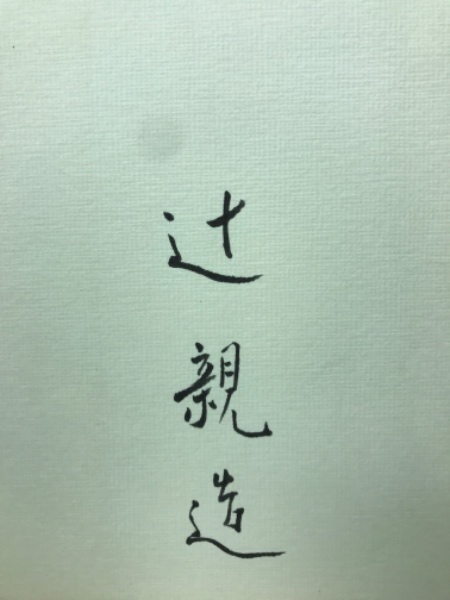 辻親造